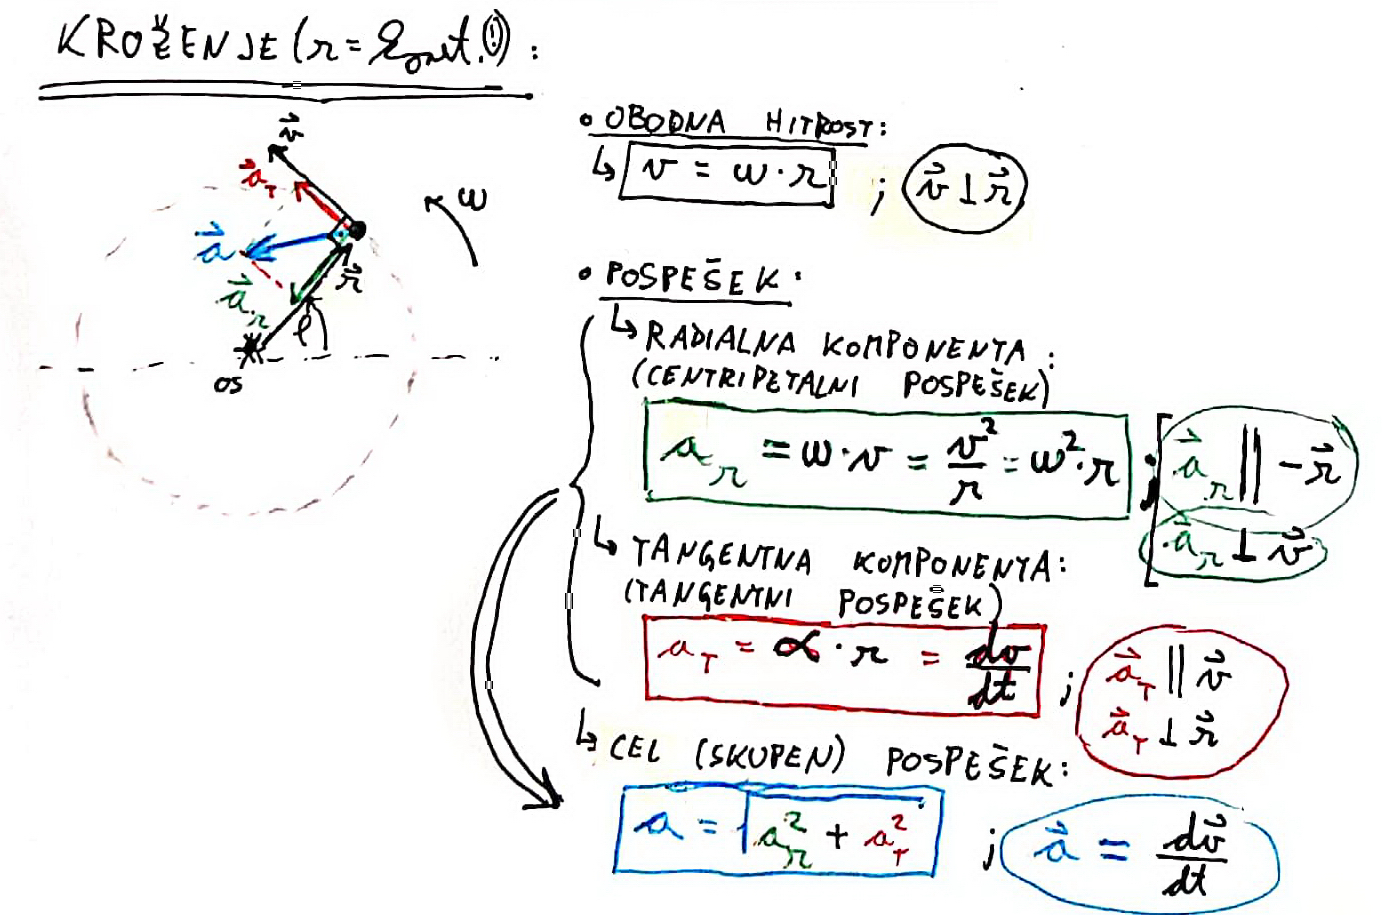 KROŽENJE (r = konst.!) :
• OBODNA HITROST:
↳ v = ω · r ; v⃗ ⊥ r⃗
v⃗
a⃗_T
ω
a⃗
r⃗
a⃗_r
φ
OS
• POSPEŠEK:
↳ RADIALNA KOMPONENTA:
(CENTRIPETALNI POSPEŠEK)
a_r = ω · v = v²/r = ω² · r ; a⃗_r || -r⃗
a⃗_r ⊥ v⃗
↳ TANGENTNA KOMPONENTA:
(TANGENTNI POSPEŠEK)
a_T = α · r = dv/dt ; a⃗_T || v⃗
a⃗_T ⊥ r⃗
↳ CEL (SKUPEN) POSPEŠEK:
a = √(a_r² + a_T²) ; a⃗ = dv⃗/dt